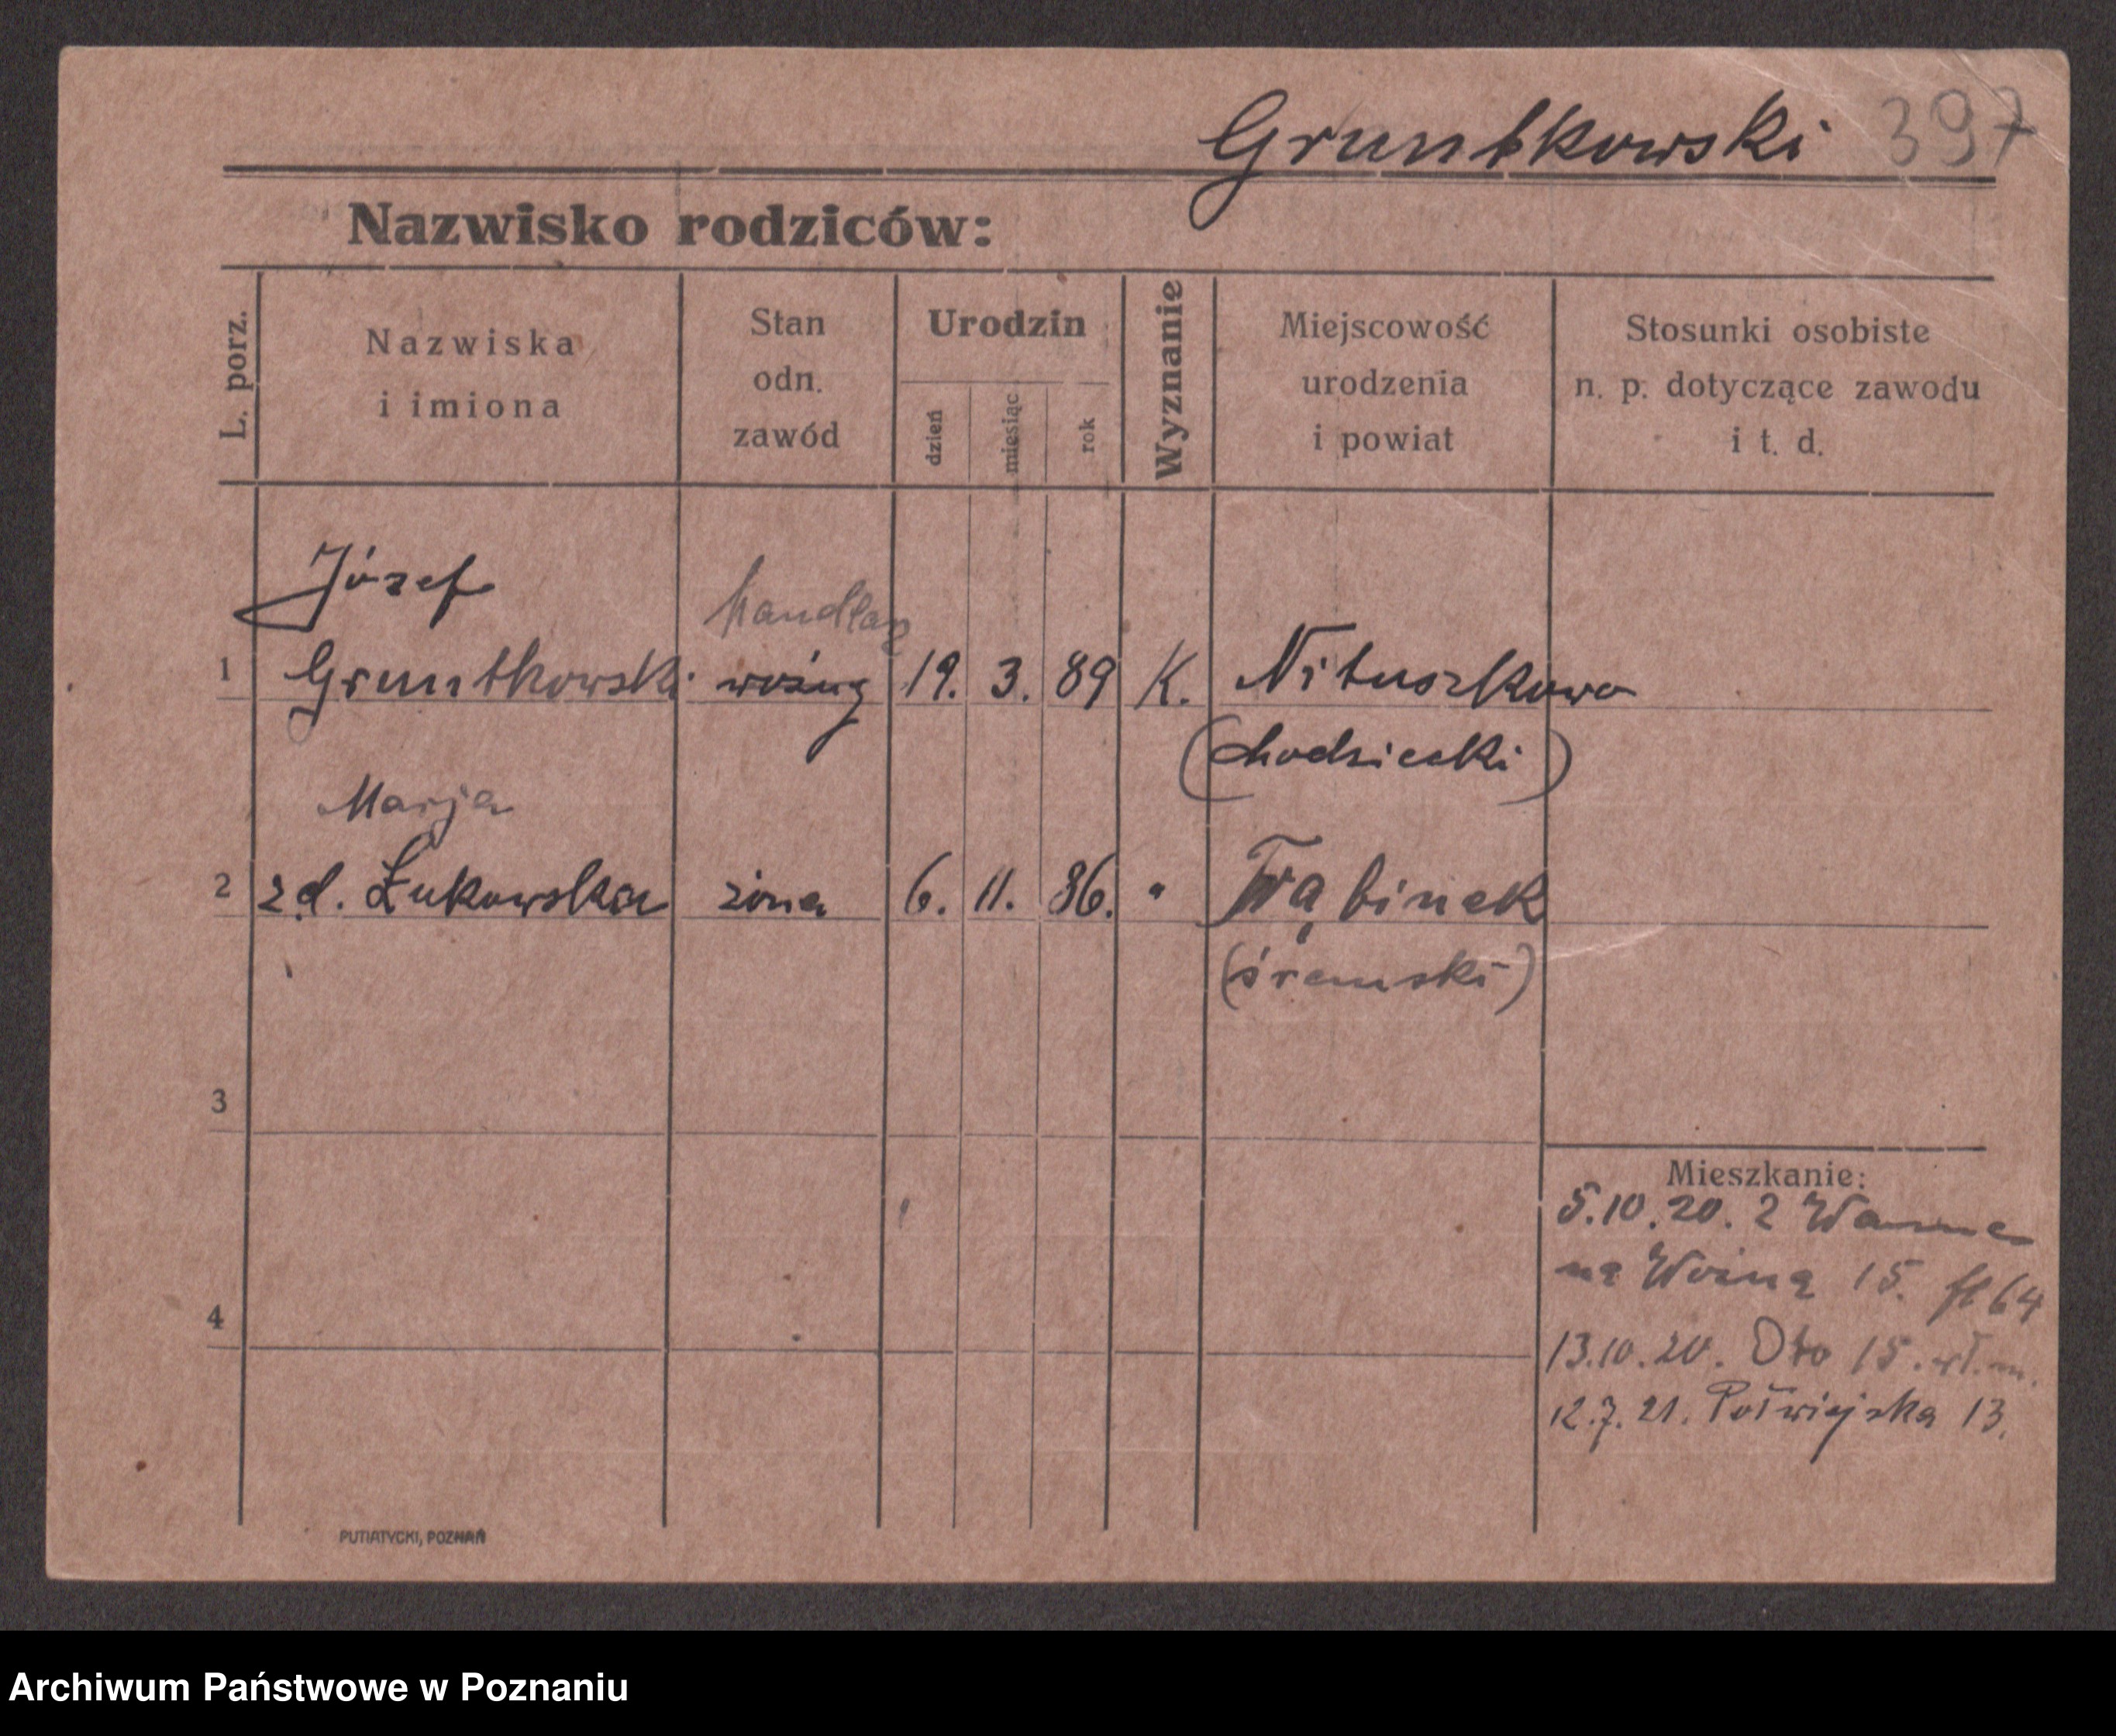 Gruntkowski 397
Nazwisko rodziców:
L. porz.
Nazwiska
i imiona
Stan
odn.
zawód
Urodzin
dzień
miesiąc
rok
Wyznanie
Miejscowość
urodzenia
i powiat
Stosunki osobiste
n. p. dotyczące zawodu
i t. d.
Józef
handlarz
1 Gruntkowski woźny 19. 3. 89 K. Nituszkowo
(chodzieski)
Marja
2 z d. Łukowska żona 6. 11. 86. " Trąbinek
(śremski)
3
Mieszkanie:
5.10.20. z
na Woźną 15. 64
4
13.10.20. Oto 15. wł. m.
12.7.21. Półwiejska 13.
PUTIATYCKI, POZNAŃ
Archiwum Państwowe w Poznaniu